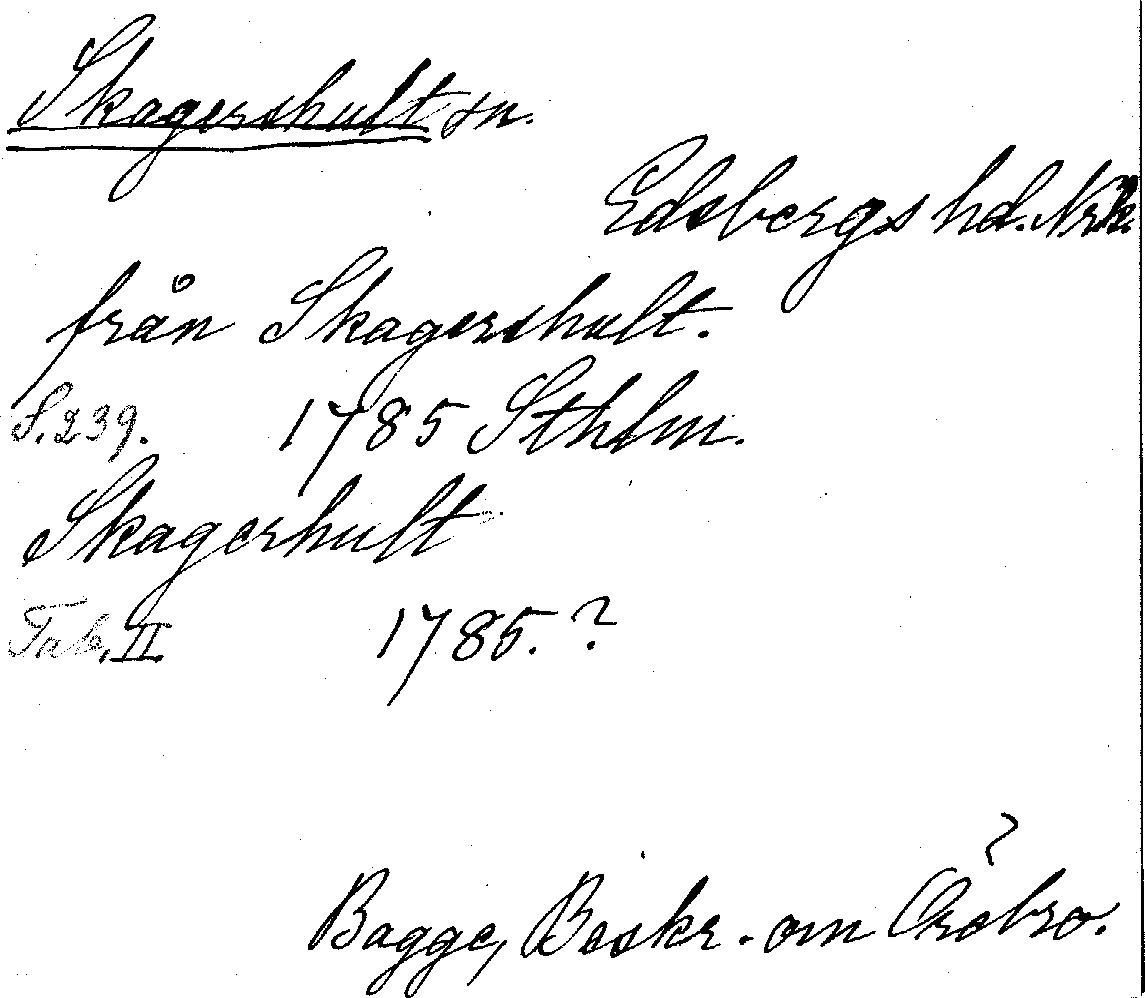 Skagershult sn.
Edsbergs hd. Nrk.
från Skagershult.
S. 239. 1785 Sthlm.
Skagerhult
Tab. II 1785. ?
Bagge, Beskr. om Örebro.